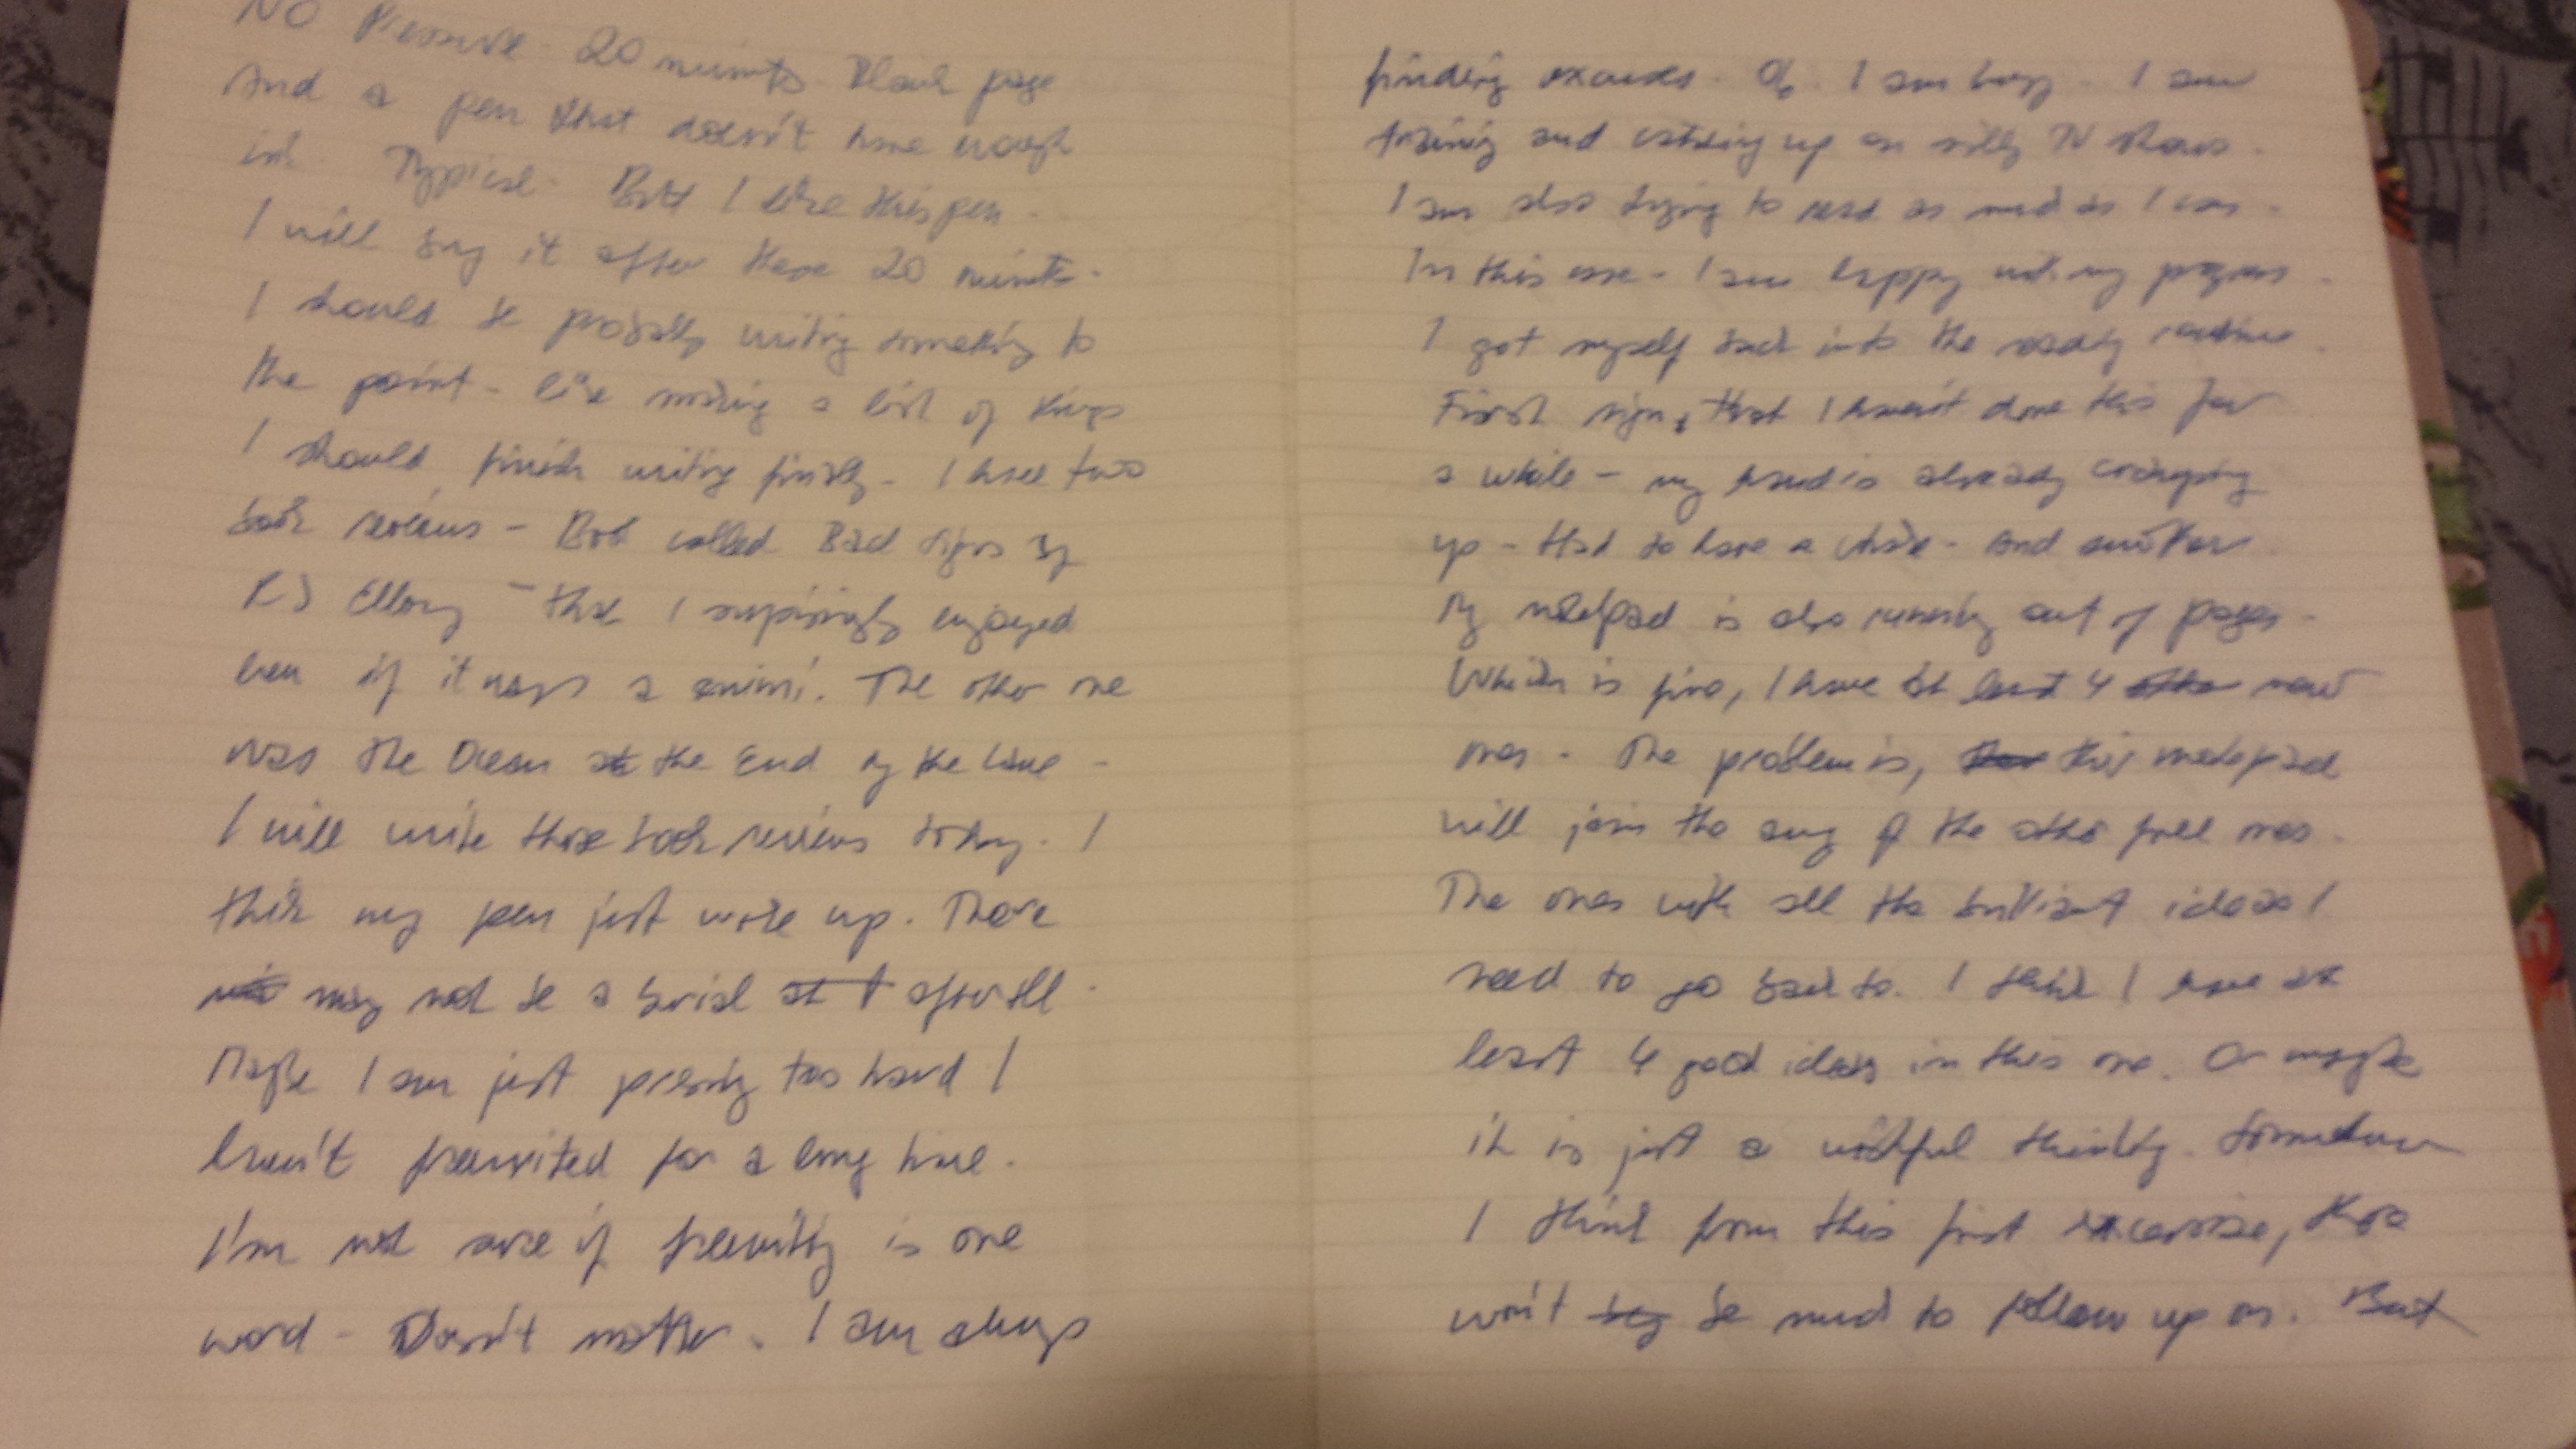 No Pressure. 20 minuts. Blank page
And a pen that doesn't have enough
ink. Typical. But I like this pen.
I will buy it after these 20 minuts.
I should be probably writing something to
the point - like making a list of things
I should finish writing finally. I have two
book reviews - Book called Bad Signs by
RJ Ellory - that I surprisingly enjoyed
even if it was a crimi. The other one
was the Ocean at the End of the Lane -
I will write those book reviews today. I
think my pen just woke up. There
may not be a burial after all.
Maybe I am just pressing too hard I
haven't freewrited for a long time.
I'm not sure if freewriting is one
word - Doesn't matter. I am always
finding excuses. I am busy. I am
training and catching up on silly TV shows.
I am also trying to read as much as I can.
In this case - I am happy with my progress.
I got myself back into the reading routine.
First sign, that I haven't done this for
a while - my hand is already cramping
up - Had to have a shake - and another
My notepad is also running out of pages.
Which is fine, I have at least 4 new
ones. The problem is, this notepad
will join the army of the other full ones.
The ones with all the brilliant ideas I
need to go back to. I think I have at
least 4 good ideas in this one. Or maybe
it is just a wishful thinking.
I think from this first excercise, there
won't be much to follow up on. But